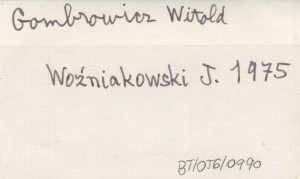 Gombrowicz Witold
Woźniakowski J. 1975
BT/OJG/0990